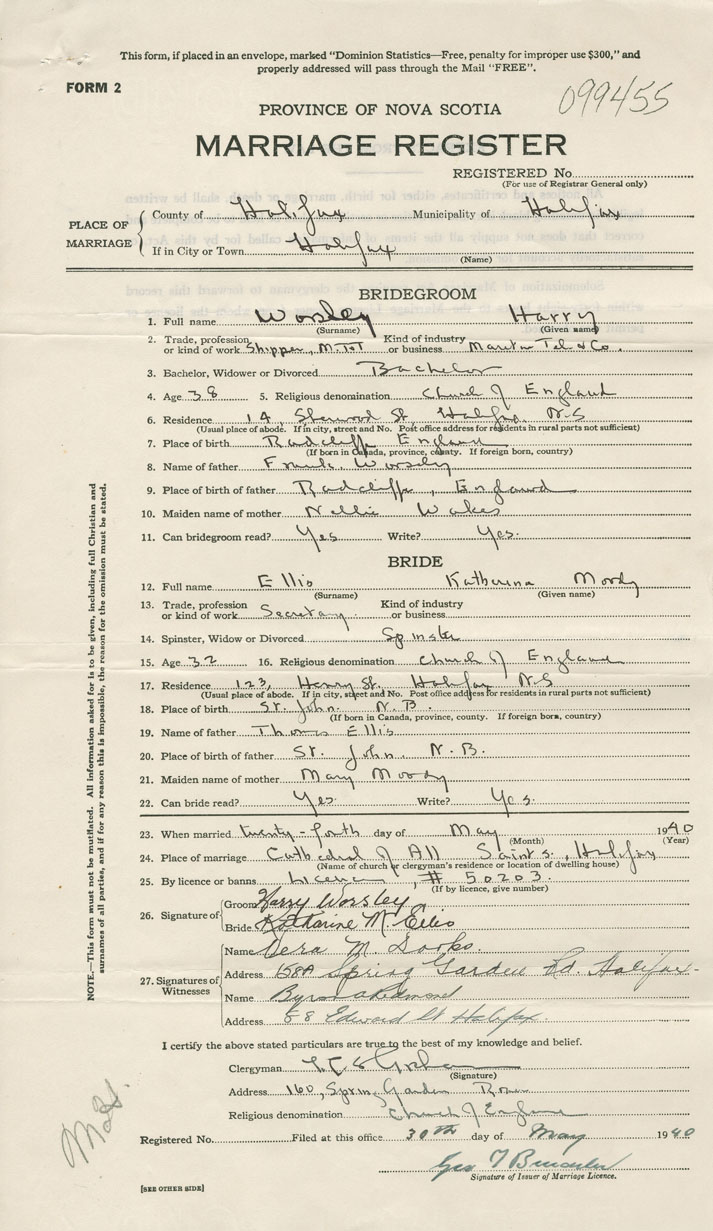 This form, if placed in an envelope, marked "Dominion Statistics—Free, penalty for improper use $300," and
properly addressed will pass through the Mail "FREE".
FORM 2
099455
PROVINCE OF NOVA SCOTIA
MARRIAGE REGISTER
REGISTERED No.
(For use of Registrar General only)
PLACE OF MARRIAGE
County of Halifax Municipality of Halifax
If in City or Town Halifax
(Name)
BRIDEGROOM
1. Full name Worsley Harry
(Surname) (Given name)
2. Trade, profession or kind of work Shipper, M.T&T Kind of industry or business Maritn Tel & Co.
3. Bachelor, Widower or Divorced Bachelor
4. Age 38 5. Religious denomination Church of England
6. Residence 14, Sherwood St. Halifax N.S
(Usual place of abode. If in city, street and No. Post office address for residents in rural parts not sufficient)
7. Place of birth Radcliffe England
(If born in Canada, province, county. If foreign born, country)
8. Name of father Frank Worsley
9. Place of birth of father Radcliffe, England
10. Maiden name of mother Nellie Wakes
11. Can bridegroom read? Yes Write? Yes.
BRIDE
12. Full name Ellis Katherina Moody
(Surname) (Given name)
13. Trade, profession or kind of work Secretary. Kind of industry or business
14. Spinster, Widow or Divorced Spinster
15. Age 32 16. Religious denomination Church of England
17. Residence 123, Henry St. Halifax N.S
(Usual place of abode. If in city, street and No. Post office address for residents in rural parts not sufficient)
18. Place of birth St. John. N.B.
(If born in Canada, province, county. If foreign born, country)
19. Name of father Thomas Ellis
20. Place of birth of father St. John, N.B.
21. Maiden name of mother Mary Moody
22. Can bride read? Yes. Write? Yes.
23. When married twenty-fouth day of May 1940
(Month) (Year)
24. Place of marriage Cathedral of All Saints, Halifax
(Name of church or clergyman's residence or location of dwelling house)
25. By licence or banns Licence, # 50203.
(If by licence, give number)
26. Signature of
Groom Harry Worsley
Bride Katharine M. Ellis
27. Signatures of Witnesses
Name Vera M.
Address 158A Spring Garden Rd. Halifax-
Name
Address 58 Edward St Halifax.
I certify the above stated particulars are true to the best of my knowledge and belief.
Clergyman
(Signature)
Address 160, Spring Garden
Religious denomination Church of England
Registered No. Filed at this office 30th day of May 1940
Signature of Issuer of Marriage Licence.
[SEE OTHER SIDE]
NOTE.—This form must not be mutilated. All information asked for is to be given, including full Christian and
surnames of all parties, and if for any reason this is impossible, the reason for the omission must be stated.